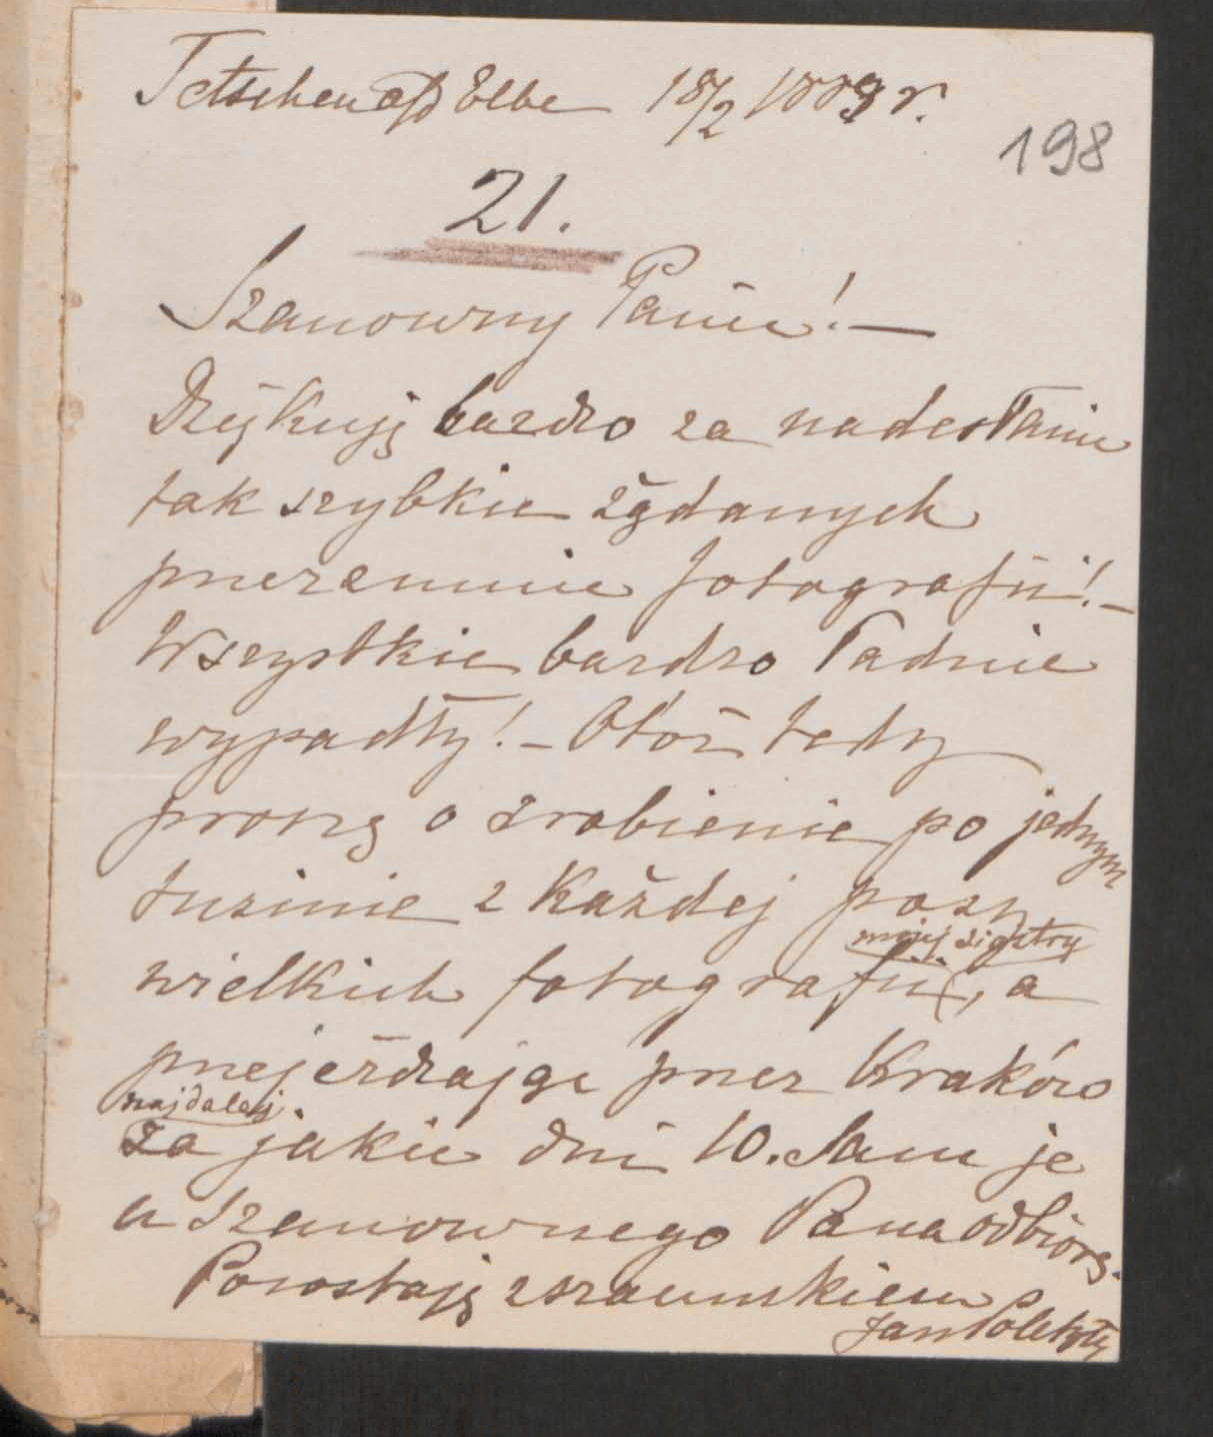 Tetschen a/d Elbe 18/2 1889 r.
198
21.
Szanowny Panie! —
Dziękuję bardzo za nadesłanie
tak szybkie żądanych
przezemnie fotografii! —
Wszystkie bardzo ładnie
wypadły! — Otóż tedy
proszę o zrobienie po jednym
tuzinie z każdej pozy
mojej siostry
wielkich fotografii, a
przejeżdżając przez Kraków
najdalej
za jakie dni 10. Sam je
u Szanownego Pana odbiorę.
Pozostaję z szacunkiem
Jan